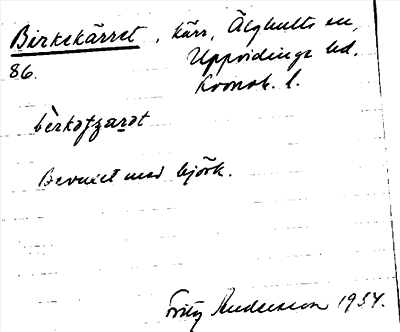 Birkekärret, kärr, Älghults sn,
86. Uppvidinge hd.
Kronob. l.
Bevuxet med björk.
Fritz Andersson 1934.